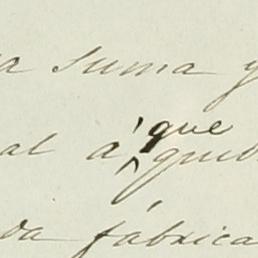 a suma y
al á que
da fábrica